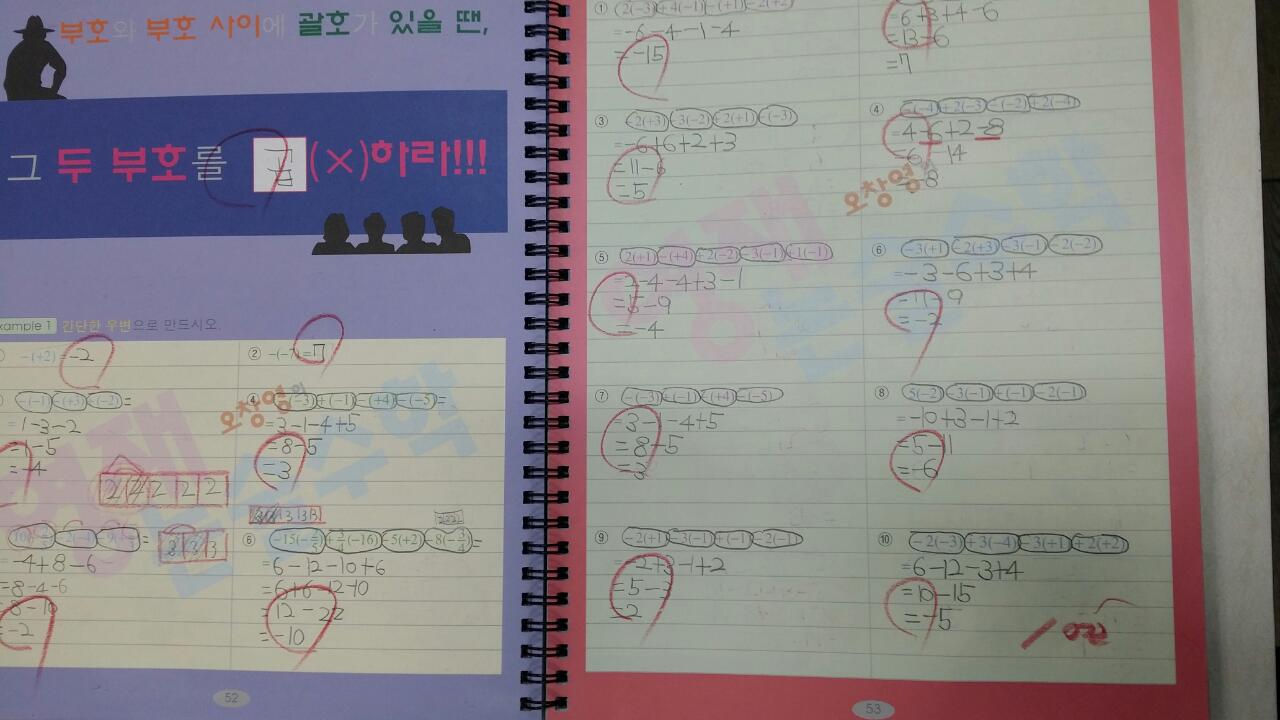 부호와 부호 사이에 괄호가 있을 땐,
그 두 부호를 곱(×)하라!!!
xample 1 간단한 우변으로 만드시오.
-(+2) -2
② -(-7)=7
-(-1)-(+3)+(-2)=
=1-3-2
=1-5
=-4
④
=3-1-4+5
=8-5
=3
2 2 2 2 2
3 3 3
=-4+8-6
=8-4-6
=8-10
=-2
⑥
=6-12-10+6
=6+6-12-10
=12-22
=-10
52
① 2(-3)+4(-1)-(+1)-2(+2)
=-6-4-1-4
=-15
=6+3+4-6
=13-6
=7
③ -2(+3)-3(-2)+2(+1)-(-3)
=-6+6+2+3
=11-6
=5
④ -(-4)+2(-3)-(-2)+2(-4)
=4-6+2-8
=6-14
=-8
오창영
⑤ 2(+1)-(+4)+2(-2)-3(-1)+1(-1)
=2-4-4+3-1
=5-9
=-4
⑥ -3(+1)-2(+3)-3(-1)-2(-2)
=-3-6+3+4
⑦ -(-3)+(-1)-(+4)-(-5)
=3-1-4+5
=8-5
=3
⑧ 5(-2)-3(-1)+(-1)-2(-1)
=-10+3-1+2
=5-11
=-6
⑨ -2(+1)-3(-1)+(-1)-2(-1)
=-2+3-1+2
=5-3
=2
⑩ -2(-3)+3(-4)-3(+1)+2(+2)
=6-12-3+4
=10-15
=-5
53